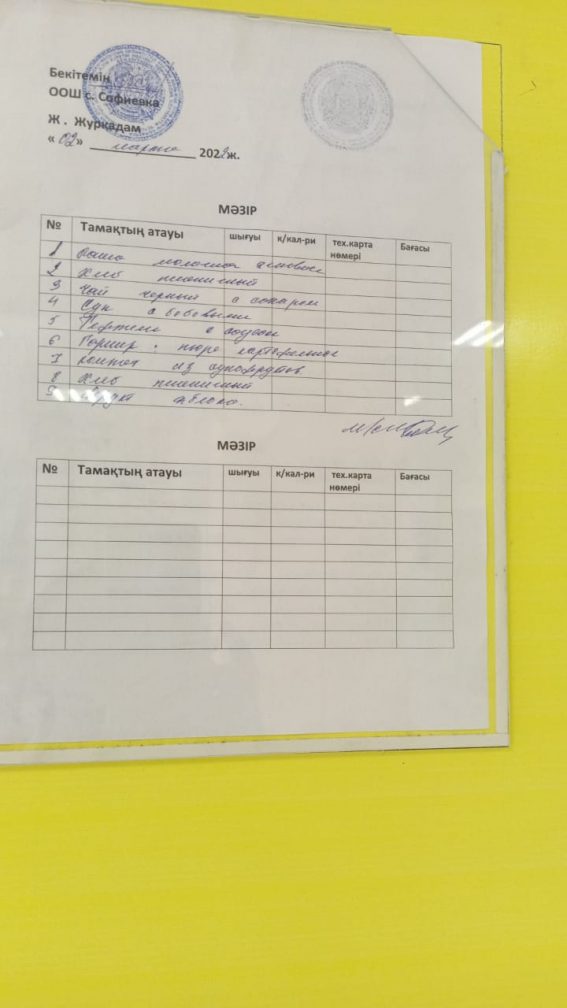 Бекітемін
ООШ с. Софиевка
Ж . Журкадам
« 02 » марта 2022ж.
МӘЗІР
№ Тамақтың атауы шығуы к/кал-ри тех.карта нөмері Бағасы
1 Каша молочная
2 Хлеб пшеничный
3 Чай черный с сахаром
4 Суп с бобовыми
5 Тефтели с соусом
6 Гарнир : пюре картофельное
7 Компот из сухофруктов
8 Хлеб пшеничный
9 Фрукт яблоко.
МӘЗІР
№ Тамақтың атауы шығуы к/кал-ри тех.карта нөмері Бағасы